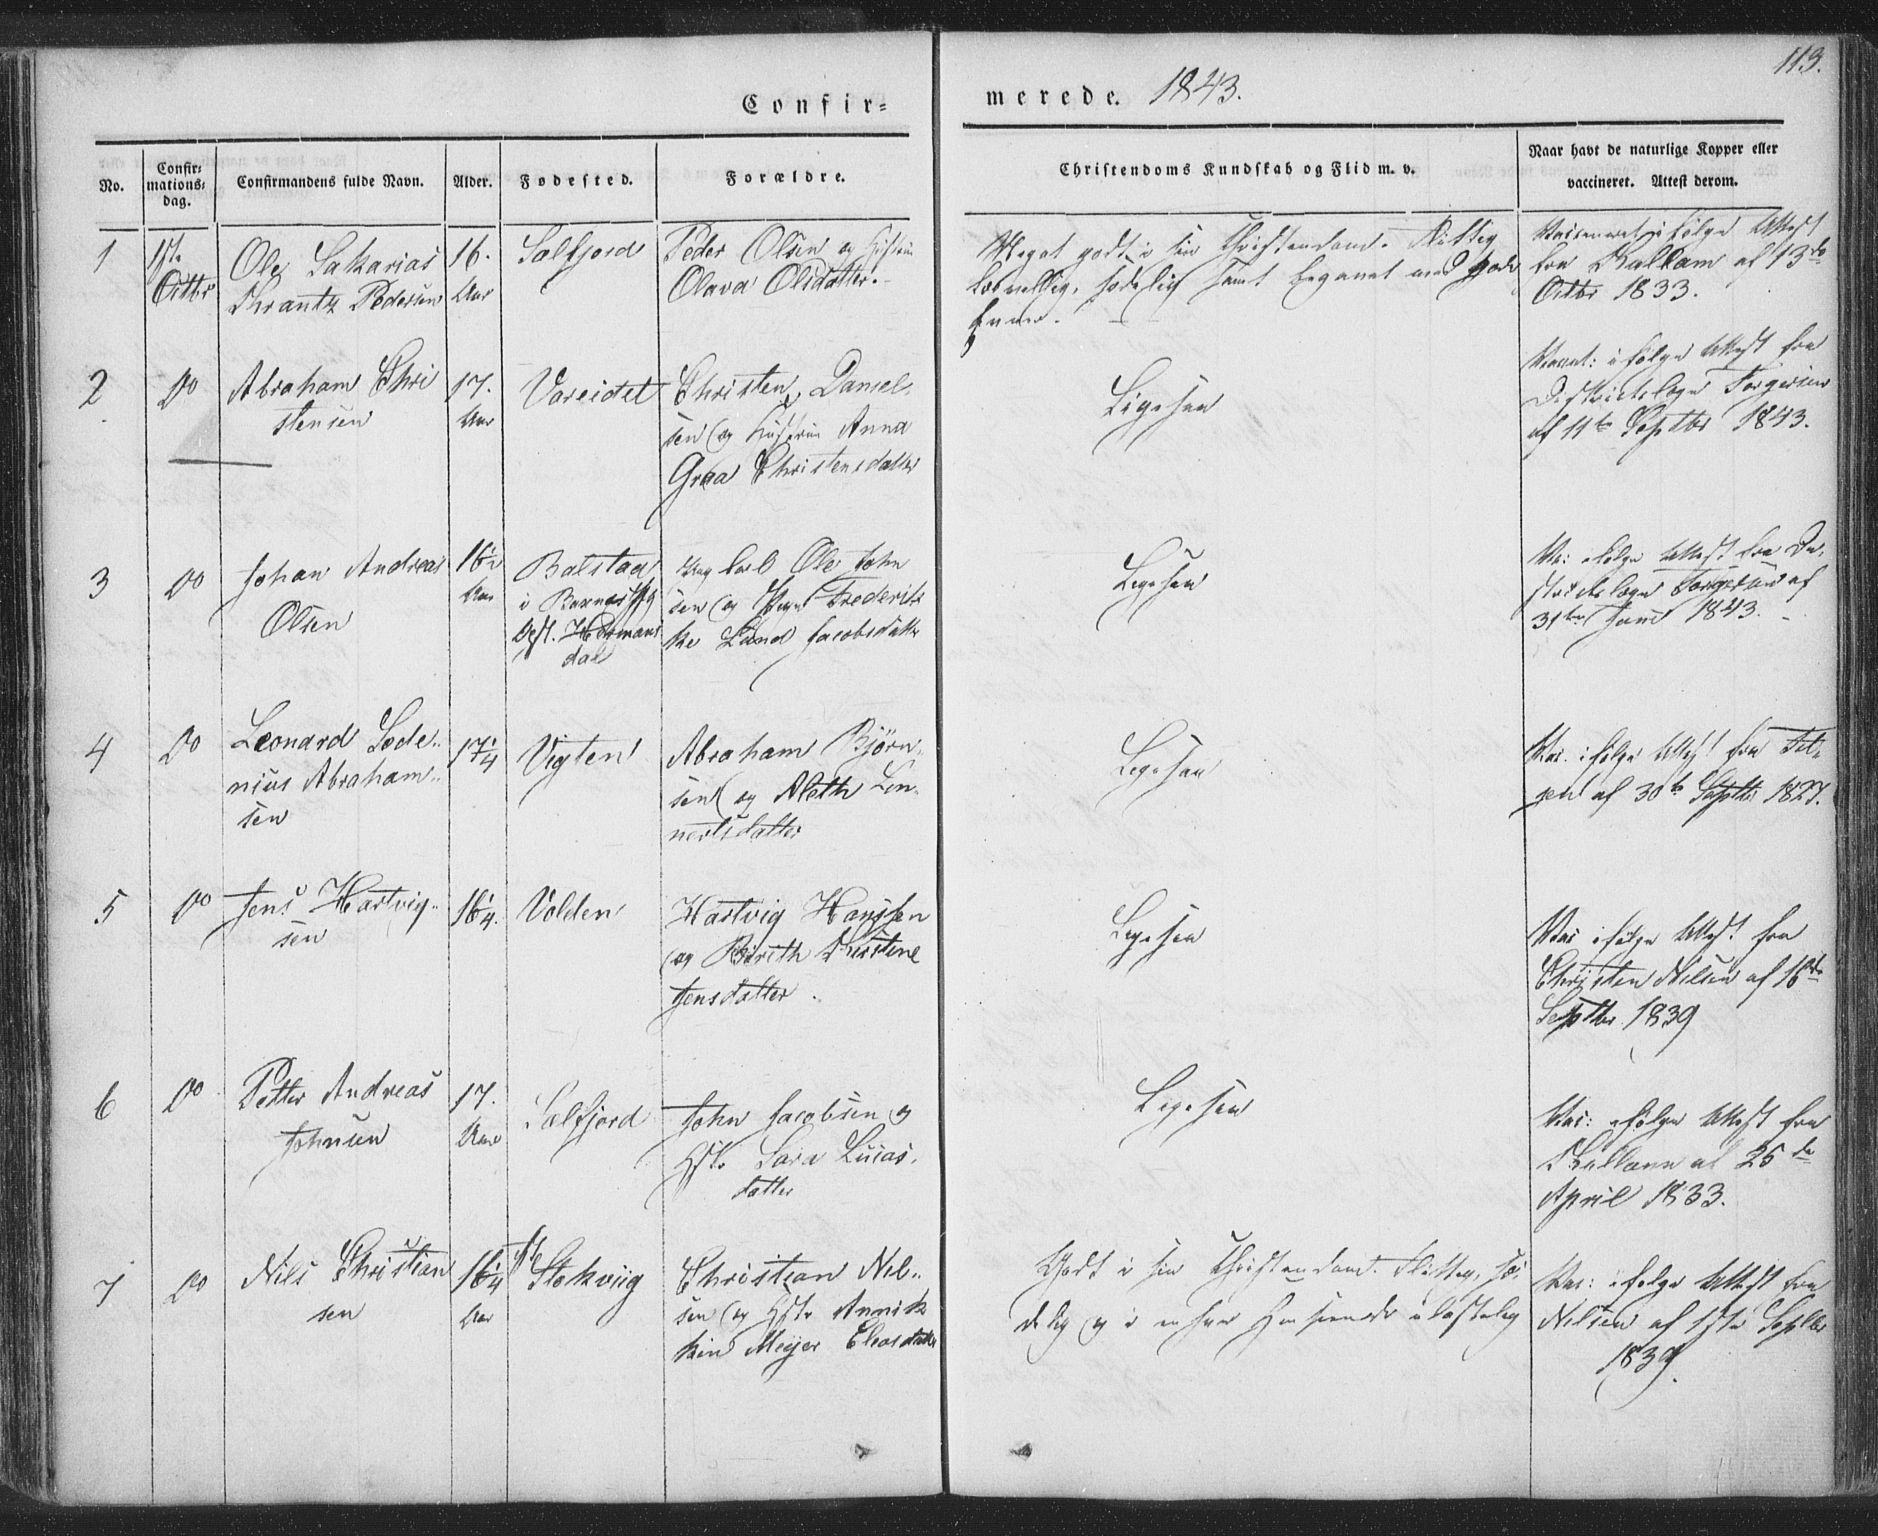 113.
Confir-
merede. 1843.
No.
Confir-
mations-
dag.
Confirmandens fulde Navn.
Alder.
Fødested.
Forældre.
Christendoms Kundskab og Flid m. v.
Naar havt de naturlige Kopper eller
vaccineret. Attest derom.
1
1ste
Octbr
Ole Sakarias
Krantz Pedersen
16.
Aar
Salfjord
Peder Olsen og Hustru
Olava Olsdatter.
Meget godt i sin Christendom. Flittig
sædelig samt begavet med gode
Evner.
Vaccineret ifølge Attest
fra Kallam af 13de
Octbr 1833.
2
Do
Abraham Chri
stensen
17.
Aar
Vareidet
Christen Daniel-
sen og Hustrue Anna
Graa Christensdatter
Ligesaa
Vaccnt: ifølge Attest fra
Districtslæge Torgersen
af 11te Septbr 1843.
3
Do
Johan Andreas
Olsen
16½
Aar
Balstad
i
dal
Ole John
sen og Pige Frederik
ke Lund Jacobsdatter
Ligesaa
Va: ifølge Attest fra Di-
strictslæge Torgersen af
31te 1843.
4
Do
Leonard Sode-
nius Abraham-
sen
17¼
Vigten
Abraham Bjørn-
sen og Aleth Len-
nertsdatter
Ligesaa
Vac. ifølge Attest fra
af 30te Septbr 1827.
5
Do
Jens Hartvig-
sen
16¼.
Volden
Hartvig Hanssen
og Birith Kirstine
Jensdatter.
Ligesaa
Vac ifølge Attest fra
Christen Nilsen af 16de
Septbr 1839
6
Do
Petter Andreas
Johnsen
17.
Aar
Salfjord
John Jacobsen og
Hstr Sara Lucas-
datter
Ligesaa
Vac: ifølge Attest fra
Kallam af 25de
April 1833.
7
Do
Nils Christian
sen
16¼
Aar
Stokviig
Christian Nil-
sen og Hstr Annik
kin Meyer Eliasdatter
Godt i sin Christendom. Flittig, sæ-
delig og i enhver Henseende ulastelig
Vac: ifølge Attest fra
Nilsen af 1ste Septbr
1839.